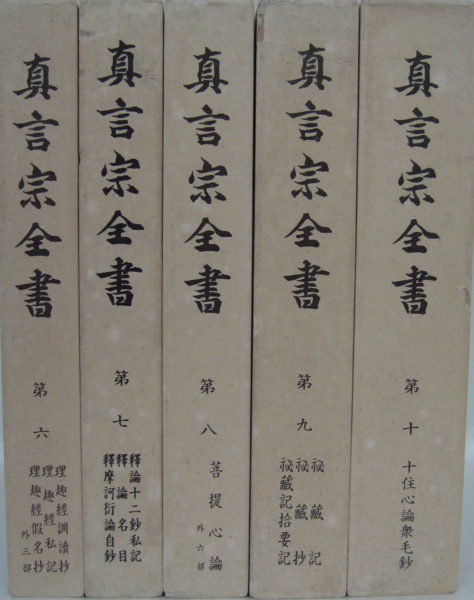 真言宗全書
第六
理趣經訓讀抄
理趣經私記
理趣經假名抄
外三部
真言宗全書
第七
釋論十二鈔私記
釋論名目
釋摩訶衍論自鈔
真言宗全書
第八
菩提心論
外六部
真言宗全書
第九
祕藏記
祕藏抄
祕藏記拾要記
真言宗全書
第十
十住心論衆毛鈔